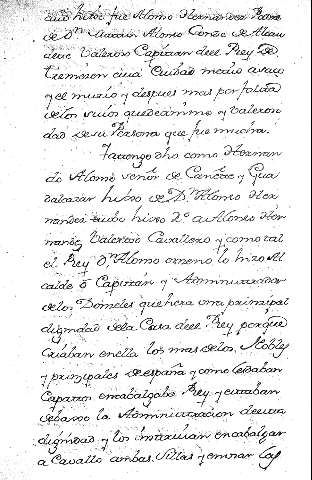 cuio hixo fue Alonso Hernandez Padre
de Dn Martin Alonso Conde de Alcau
dete Valeroso Capitan deel Rey De
tremecen cuia Ciudad metio a saco
y el murio y despues mas por falta
de los suios que de animo y Valerosi
dad de su Persona que fue mucha.
Ya tengo dho como Hernan
do Alonso señor de Cañete y Gua
dalcazar hixo de Dn Alonso Her
nandez tubo hixo 2º a Alonso Her
nandez Valeroso Cavallero y como tal
el Rey Dn Alonso onceno lo hizo Al
caide o Capitan y Administrador
de los Donceles que hera una principal
dignidad de la Casa deel Rey porque
Criaban en ella los mas de los Nobles
y principales de españa y como llebaban
Capitan encabalgaba Rey y estaban
debaxo la Administracion de esta
dignidad y los instruian en cabalgar
a Cavallo ambas Sillas y en usar las